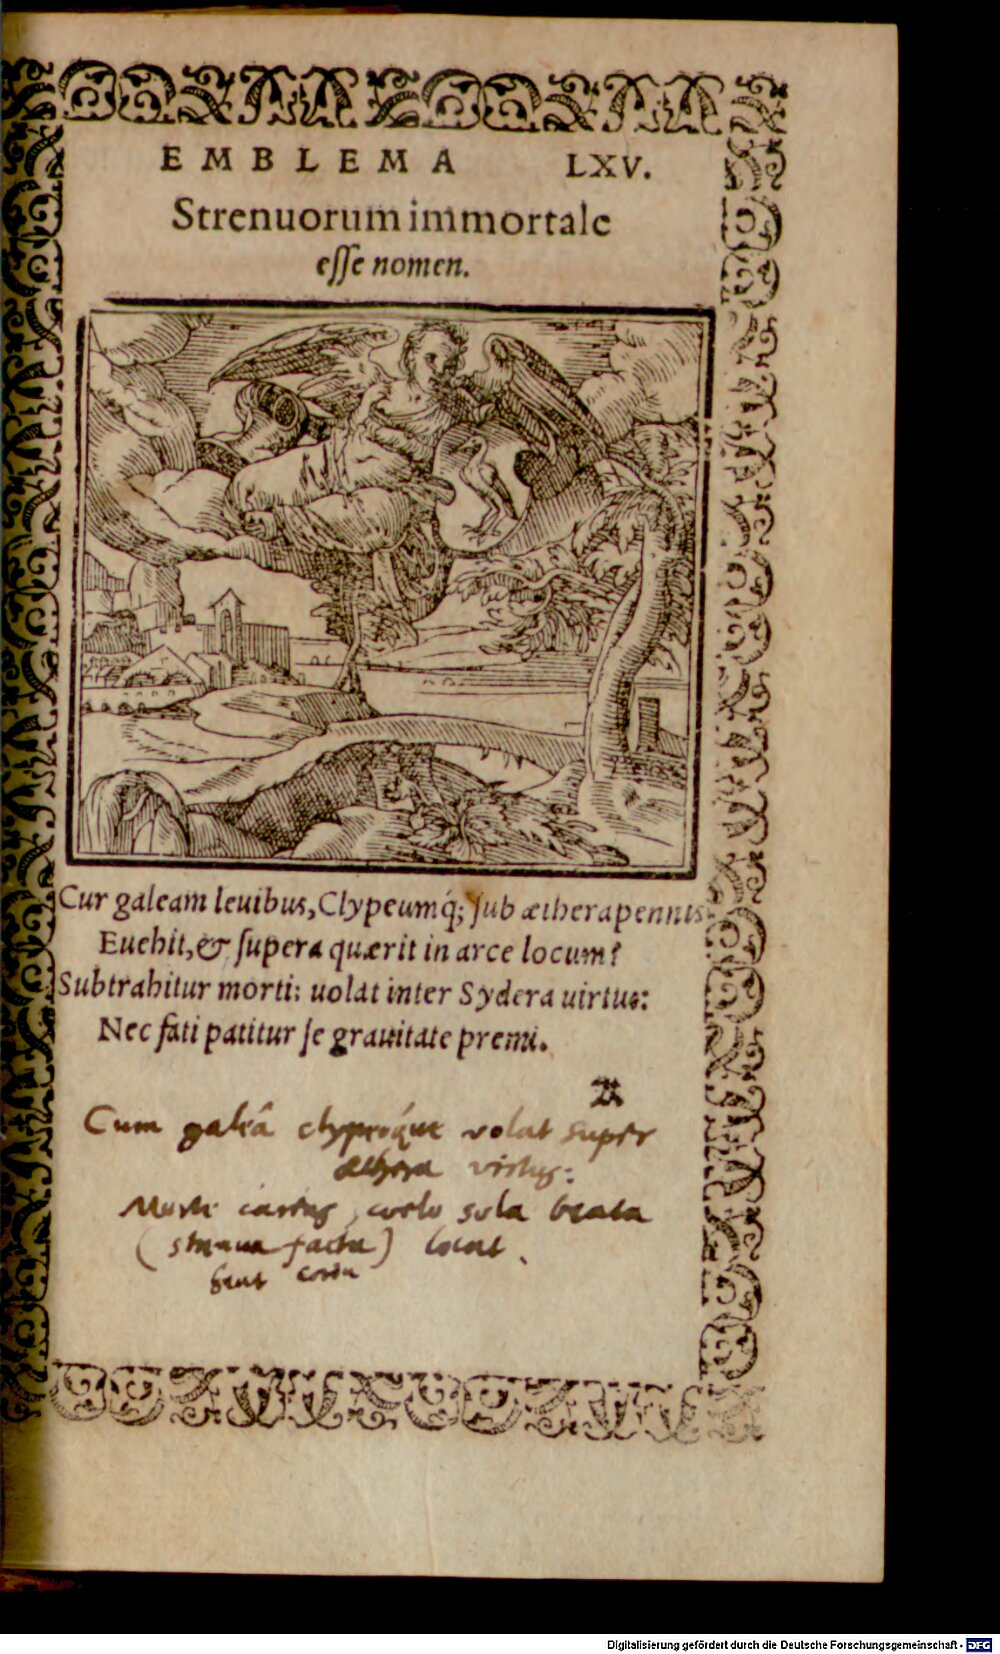 EMBLEMA LXV.
Strenuorum immortale
esse nomen.
Cur galeam leuibus, Clypeumq́; sub æthera pennis
Euehit, & supera quærit in arce locum?
Subtrahitur morti: uolat inter Sydera uirtus:
Nec fati patitur se grauitate premi.
Cum galeâ clypeoq́ue volat super
æthera virtus:
Morte carens, coelo sola beata
(strenua facta) locat.
Digitalisierung gefördert durch die Deutsche Forschungsgemeinschaft - DFG